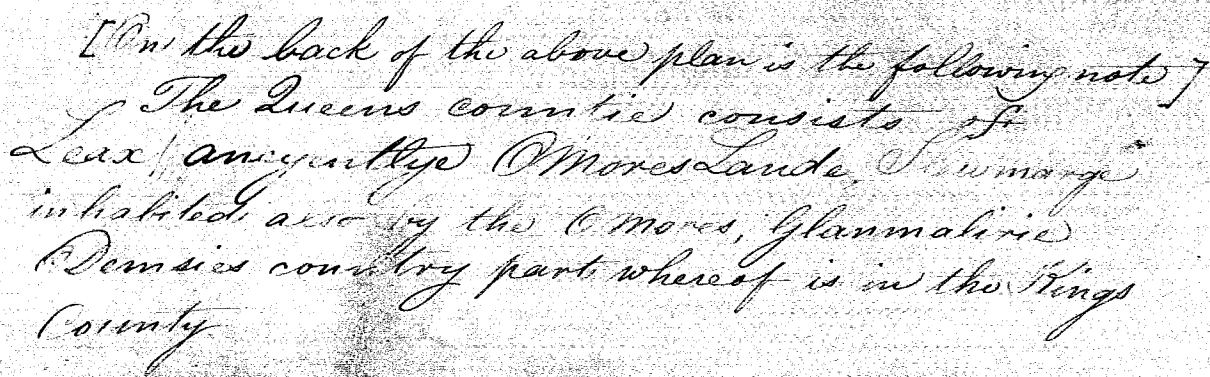 [On the back of the above plan is the following note]
The Queens countie consists of
Leax/ ancyentlye OMores Lande, Slewmarge
inhabited also by the OMores, Glanmalirie
ODemsies country part whereof is in the Kings
County